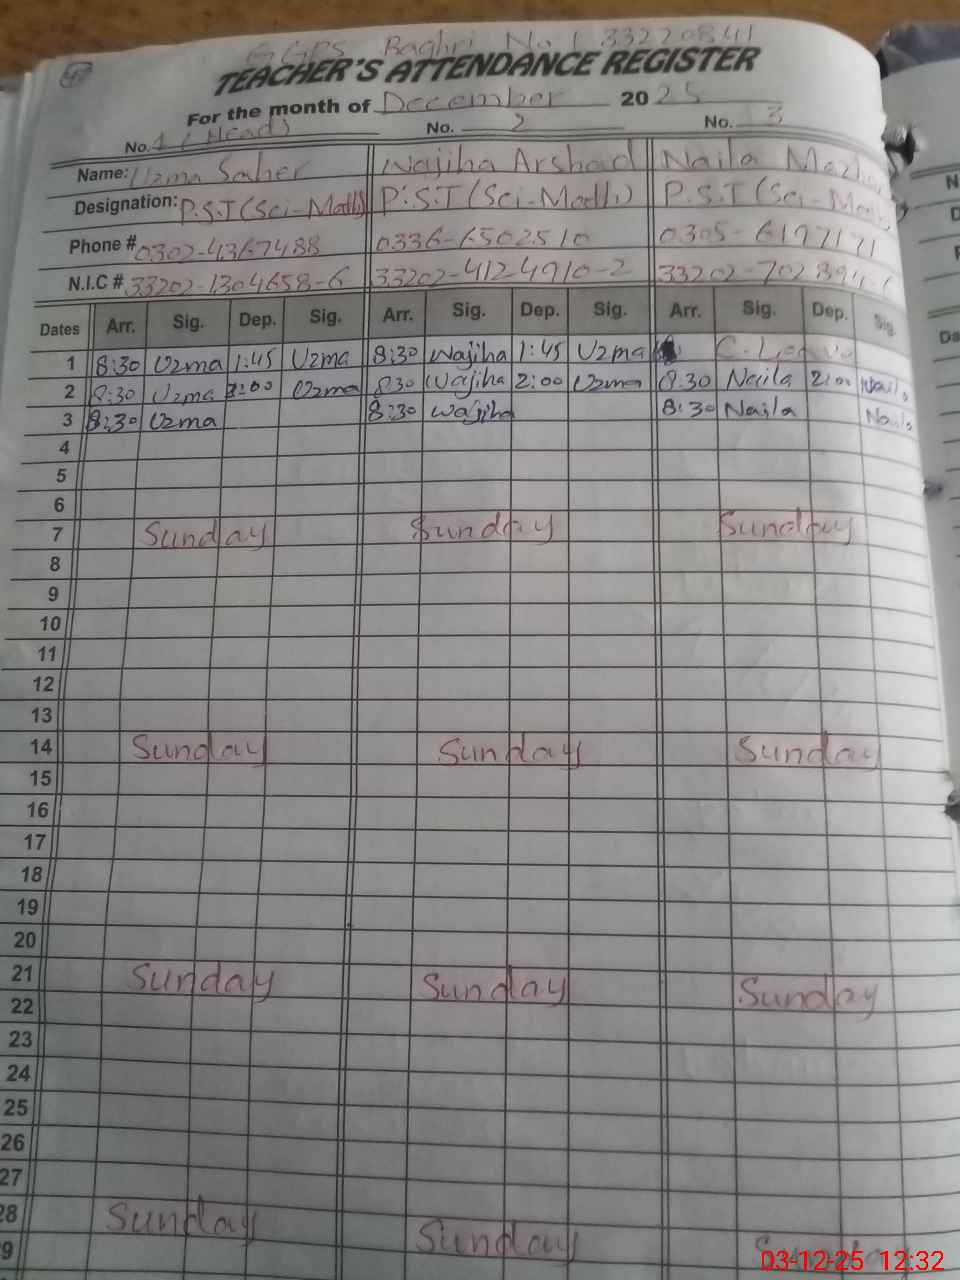 GGPS Baghri No 1 33220841
48
TEACHER'S ATTENDANCE REGISTER
For the month of December 2025
No. 1 (Head) No. 2 No. 3
Name: Uzma Saher Wajiha Arshad Naila
Designation: P.S.T (Sci-Math) P.S.T (Sci-Math) P.S.T (Sci-Math)
Phone # 0302-4367488 0336-6502510 0305-6197171
N.I.C # 33202-1304658-6 33202-4124910-2 33202-702
Dates Arr. Sig. Dep. Sig. Arr. Sig. Dep. Sig. Arr. Sig. Dep. Sig.
1 8:30 Uzma 1:45 Uzma 8:30 Wajiha 1:45 Uzma
2 8:30 Uzma 2:00 Uzma 8:30 Wajiha 2:00 Uzma 8:30 Naila 2:00 Naila
3 8:30 Uzma 8:30 Wajiha 8:30 Naila Naila
4
5
6
7 Sunday Sunday Sunday
8
9
10
11
12
13
14 Sunday Sunday Sunday
15
16
17
18
19
20
21 Sunday Sunday Sunday
22
23
24
25
26
27
28 Sunday Sunday
29
03-12-25 12:32